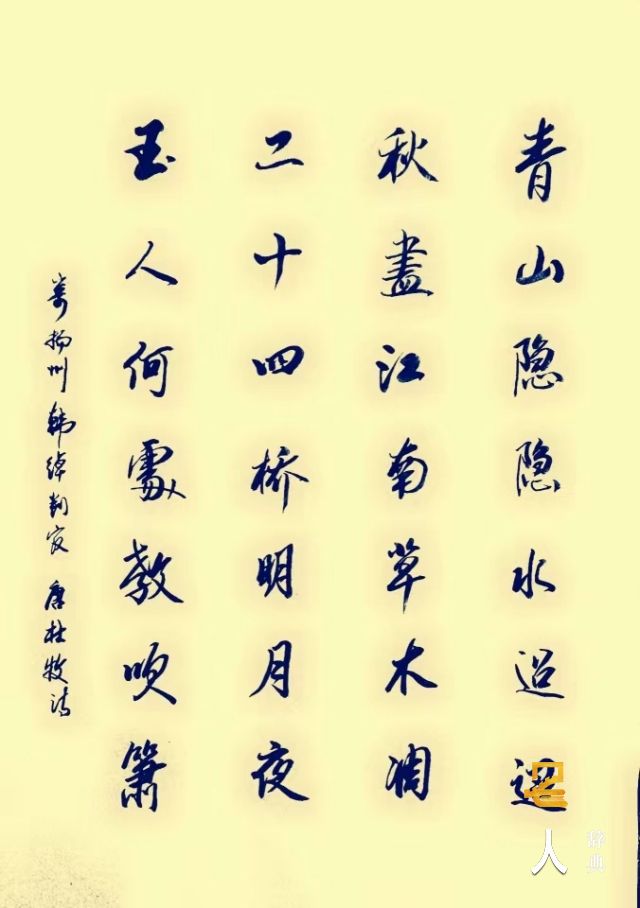 青山隐隐水迢遥
秋盡江南草木凋
二十四桥明月夜
玉人何處教吹簫
寄扬州韩绰判官 唐杜牧诗
人
辞典